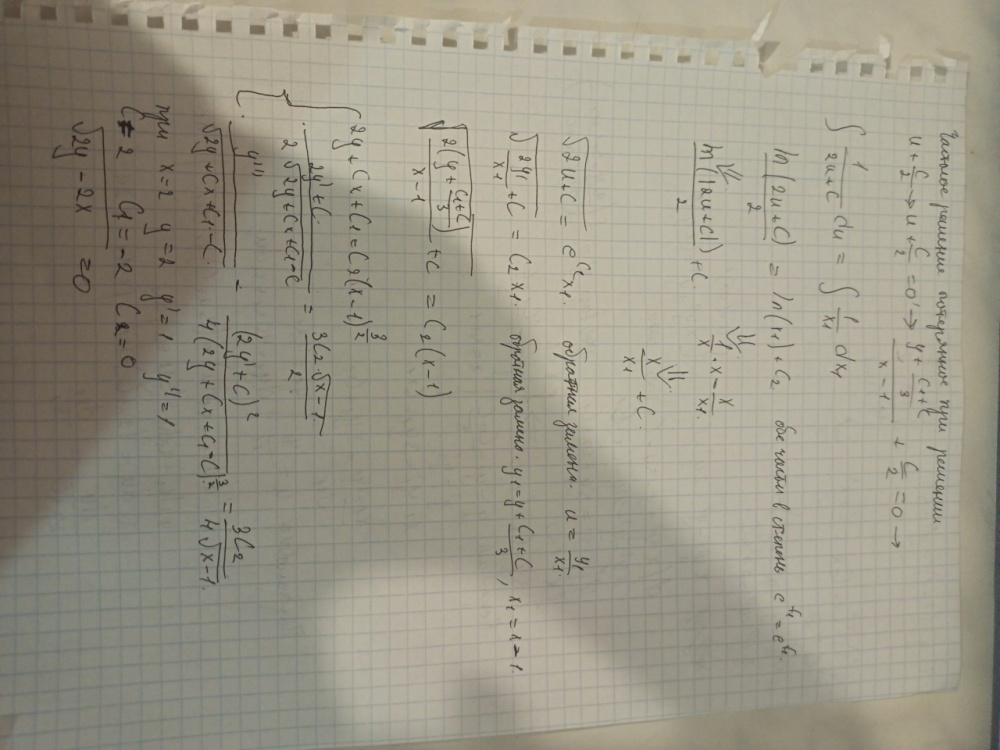 Частное решение потерянное при решении
u + C/2 → u + C/2 = 0 → (y + (C₁+C)/3)/(x-1) + C/2 = 0 →
∫ 1/(2u+C) du = ∫ 1/x₁ dx₁
ln(2u+C)/2 = ln(x₁) + C₂ обе части в степень
⇓ ⇓
ln(|2u+C|)/2 + C.
x/x₁ + C.
√(2u+C) = e^(C₂) x₁. обратная замена. u = y₁/x₁.
√(2y₁/x₁ + C) = C₂x₁. обратная замена. y₁ = y + (C₁+C)/3, x₁ = x-1.
√(2(y + (C₁+C)/3)/(x-1) + C) = C₂(x-1)
2y + Cx + C₁ = C₂(x-1)^(3/2)
(2y' + C)/(2√(2y+Cx+C₁-C)) = 3C₂·√(x-1)/2
y''/√(2y+Cx+C₁-C) - (2y'+C)²/(4(2y+Cx+C₁-C)^(3/2)) = 3C₂/(4√(x-1)).
при x=2 y=2 y'=1 y''=1
C=2 C₁=-2 C₂=0
√(2y-2x) = 0